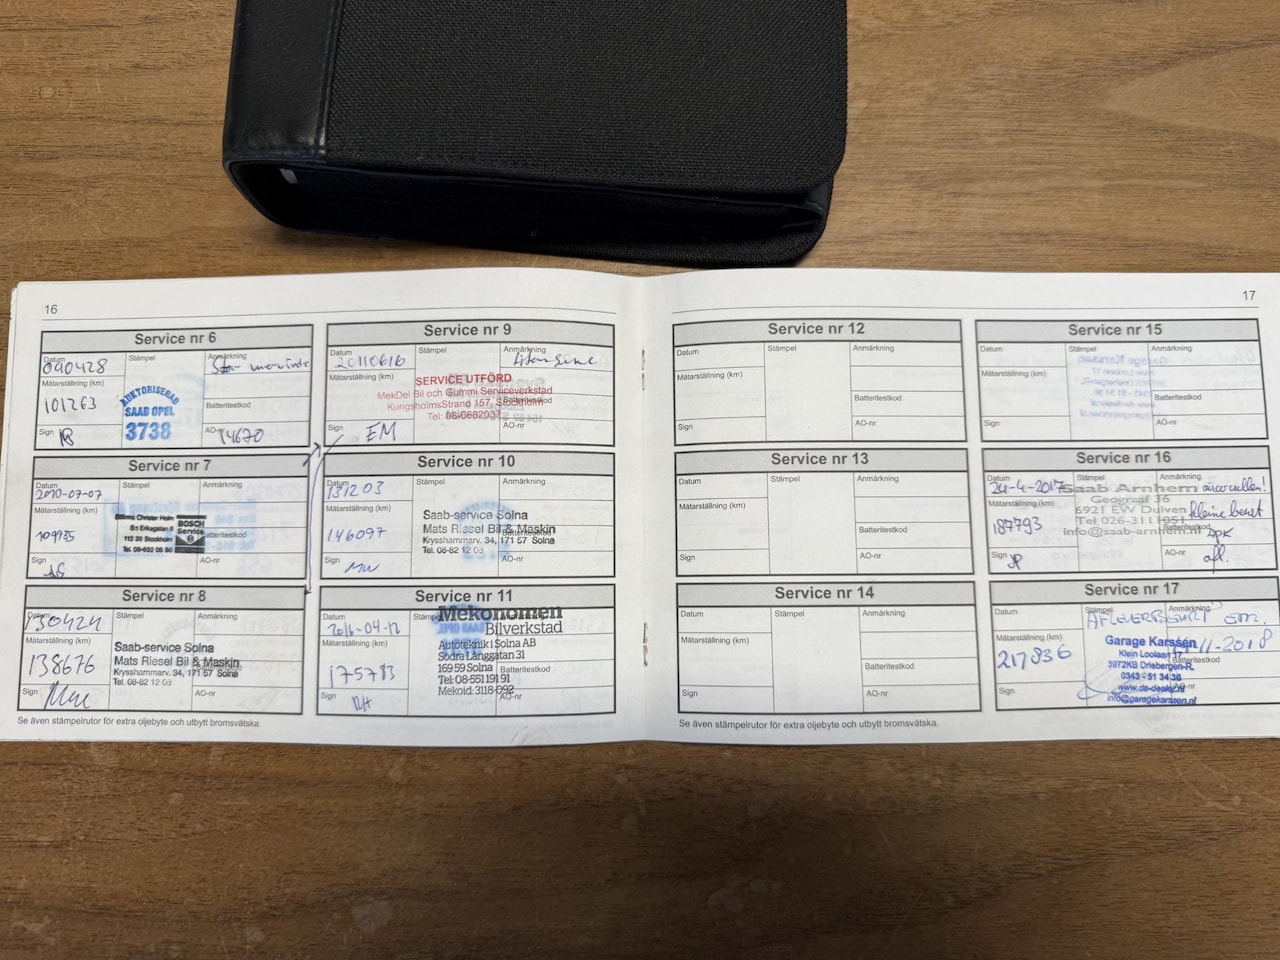 16
Service nr 6
Datum
Stämpel
Anmärkning
090428
Mätarställning (km)
101263
AUKTORISERAD
SAAB OPEL
3738
Batteritestkod
Sign
AO-nr
14670
Service nr 7
Datum
Stämpel
Anmärkning
2010-07-07
Mätarställning (km)
109935
Christer Holm
112 29 Stockholm
Tel. 08-652 06 80
BOSCH
Service
Batteritestkod
Sign
AO-nr
Service nr 8
Datum
Stämpel
Anmärkning
130424
Mätarställning (km)
138676
Saab-service Solna
Mats Riesel Bil & Maskin
Krysshammarv. 34, 171 57 Solna
Tel. 08-82 12 08
Sign
AO-nr
Service nr 9
Datum
Stämpel
Anmärkning
20110616
Mätarställning (km)
SERVICE UTFÖRD
MekDel Bil och Gummi Serviceverkstad
KungsholmsStrand 157, Stockholm
Tel: 08-6682037
Batteritestkod
Sign
EM
AO-nr
Service nr 10
Datum
Stämpel
Anmärkning
131203
Mätarställning (km)
146097
Saab-service Solna
Mats Riesel Bil & Maskin
Krysshammarv. 34, 171 57 Solna
Tel. 08-82 12 08
Batteritestkod
Sign
MW
AO-nr
Service nr 11
Datum
Stämpel
2016-04-12
Mätarställning (km)
175783
Mekonomen
Bilverkstad
Autoteknik i Solna AB
Södra Långgatan 31
169 59 Solna
Tel: 08-551 191 91
Mekoid: 3118-092
Batteritestkod
Sign
AO-nr
Se även stämpelrutor för extra oljebyte och utbytt bromsvätska.
17
Service nr 12
Datum
Stämpel
Anmärkning
Mätarställning (km)
Batteritestkod
Sign
AO-nr
Service nr 13
Datum
Stämpel
Anmärkning
Mätarställning (km)
Batteritestkod
Sign
AO-nr
Service nr 14
Datum
Stämpel
Anmärkning
Mätarställning (km)
Batteritestkod
Sign
AO-nr
Service nr 15
Datum
Stämpel
Anmärkning
Mätarställning (km)
Batteritestkod
Sign
AO-nr
Service nr 16
Datum
Stämpel
Anmärkning
24-4-2017
Mätarställning (km)
187793
Saab Arnhem
Geograaf 36
6921 EW Duiven
Tel 026-3111051
info@saab-arnhem.nl
kleine beurt
apk
afl.
Batteritestkod
Sign
AO-nr
Service nr 17
Datum
Stämpel
Anmärkning
AFLEVERBEURT
Mätarställning (km)
217836
Garage Karssen
Klein Loolaan 17
3972KB Driebergen-R.
0343 - 51 34 36
www.de-dealer.nl
info@garagekarssen.nl
11-2018
Batteritestkod
Sign
AO-nr
Se även stämpelrutor för extra oljebyte och utbytt bromsvätska.